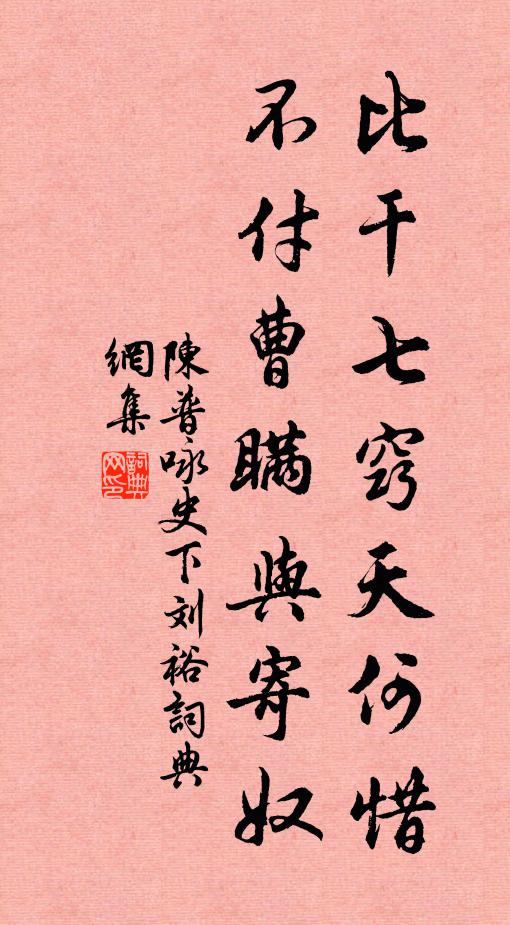 比干七窍天何惜
不付曹瞒與寄奴
陳普咏史下刘裕詞典
網集
詞典
网印